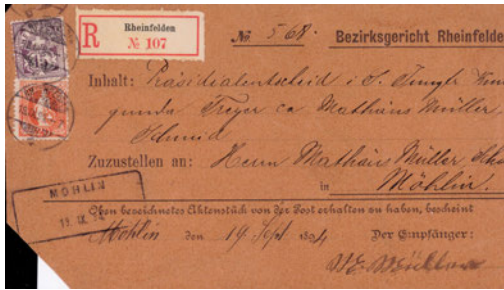 R Rheinfelden
№ 107
№ 568. Bezirksgericht Rheinfelde
Inhalt: Präsidialentscheid i. S. Jungfr
Treyer ca Mathäus Müller
Schmid
Zuzustellen an: Herrn Mathäus Müller
in Möhlin.
MÖHLIN
Oben bezeichnetes Aktenstück von der Post erhalten zu haben, bescheint
Möhlin den 19. Sept 1894 Der Empfänger: